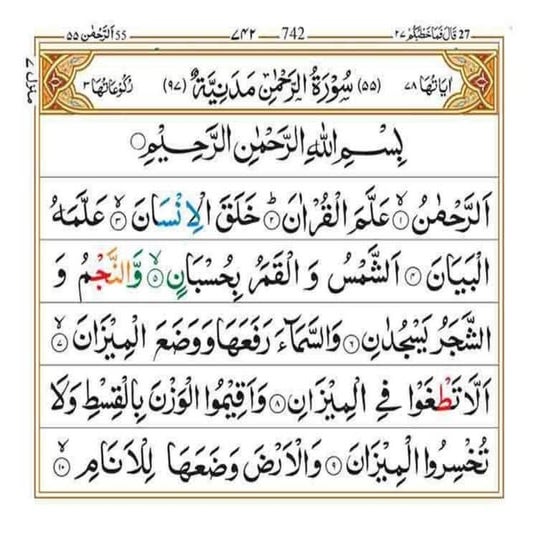 27 قَالَ فَمَا خَطْبُكُمْ ٢٧ 742 ٧٤٢ 55 اَلرَّحْمٰن ٥٥
اٰيَاتُهَا ٧٨ (٥٥) سُوْرَةُ الرَّحْمٰنِ مَدَنِيَّةٌ (٩٧) رُكُوْعَاتُهَا ٣
منزل ٧
بِسْمِ اللهِ الرَّحْمٰنِ الرَّحِيْمِ
اَلرَّحْمٰنُ ۙ﴿١﴾ عَلَّمَ الْقُرْاٰنَ ؕ﴿٢﴾ خَلَقَ الْاِنْسَانَ ۙ﴿٣﴾ عَلَّمَهُ
الْبَيَانَ ﴿٤﴾ اَلشَّمْسُ وَ الْقَمَرُ بِحُسْبَانٍ ۙ﴿٥﴾ وَّالنَّجْمُ وَ
الشَّجَرُ يَسْجُدٰنِ ﴿٦﴾ وَالسَّمَآءَ رَفَعَهَا وَوَضَعَ الْمِيْزَانَ ۙ﴿٧﴾
اَلَّا تَطْغَوْا فِي الْمِيْزَانِ ﴿٨﴾ وَاَقِيْمُوا الْوَزْنَ بِالْقِسْطِ وَلَا
تُخْسِرُوا الْمِيْزَانَ ﴿٩﴾ وَالْاَرْضَ وَضَعَهَا لِلْاَنَامِ ۙ﴿١٠﴾